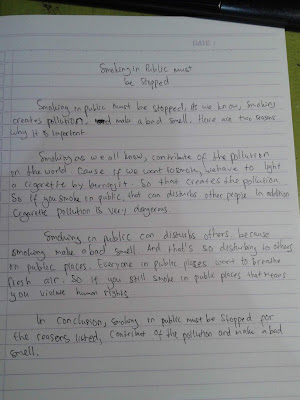 DATE :
Smoking in Public must
be Stopped
Smoking in public must be stopped, As we know, Smoking
creates pollution, and make a bad smell. Here are two reasons
why it is important
Smoking as we all know, contribute of the pollution
in the world. Cause if we want to smoke, we have to light
a cigarette by burning it. So that creates the pollution.
So if you smoke in public, that can disturbs other people. In addition
Cigarette pollution is very dangerous.
Smoking in public can disturbs others. because
smoking make a bad smell. And that's so disturbing to others
in public places. Everyone in public places want to breathe
fresh air. So if you still smoke in public places that means
you violate human rights
In conclusion, smoking in public must be stopped for
the reasons listed, Contribut of the pollution and make a bad
smell.